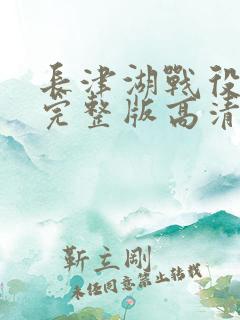 長津湖戰役
完整版高清
靳立剛
未经同意禁止转载